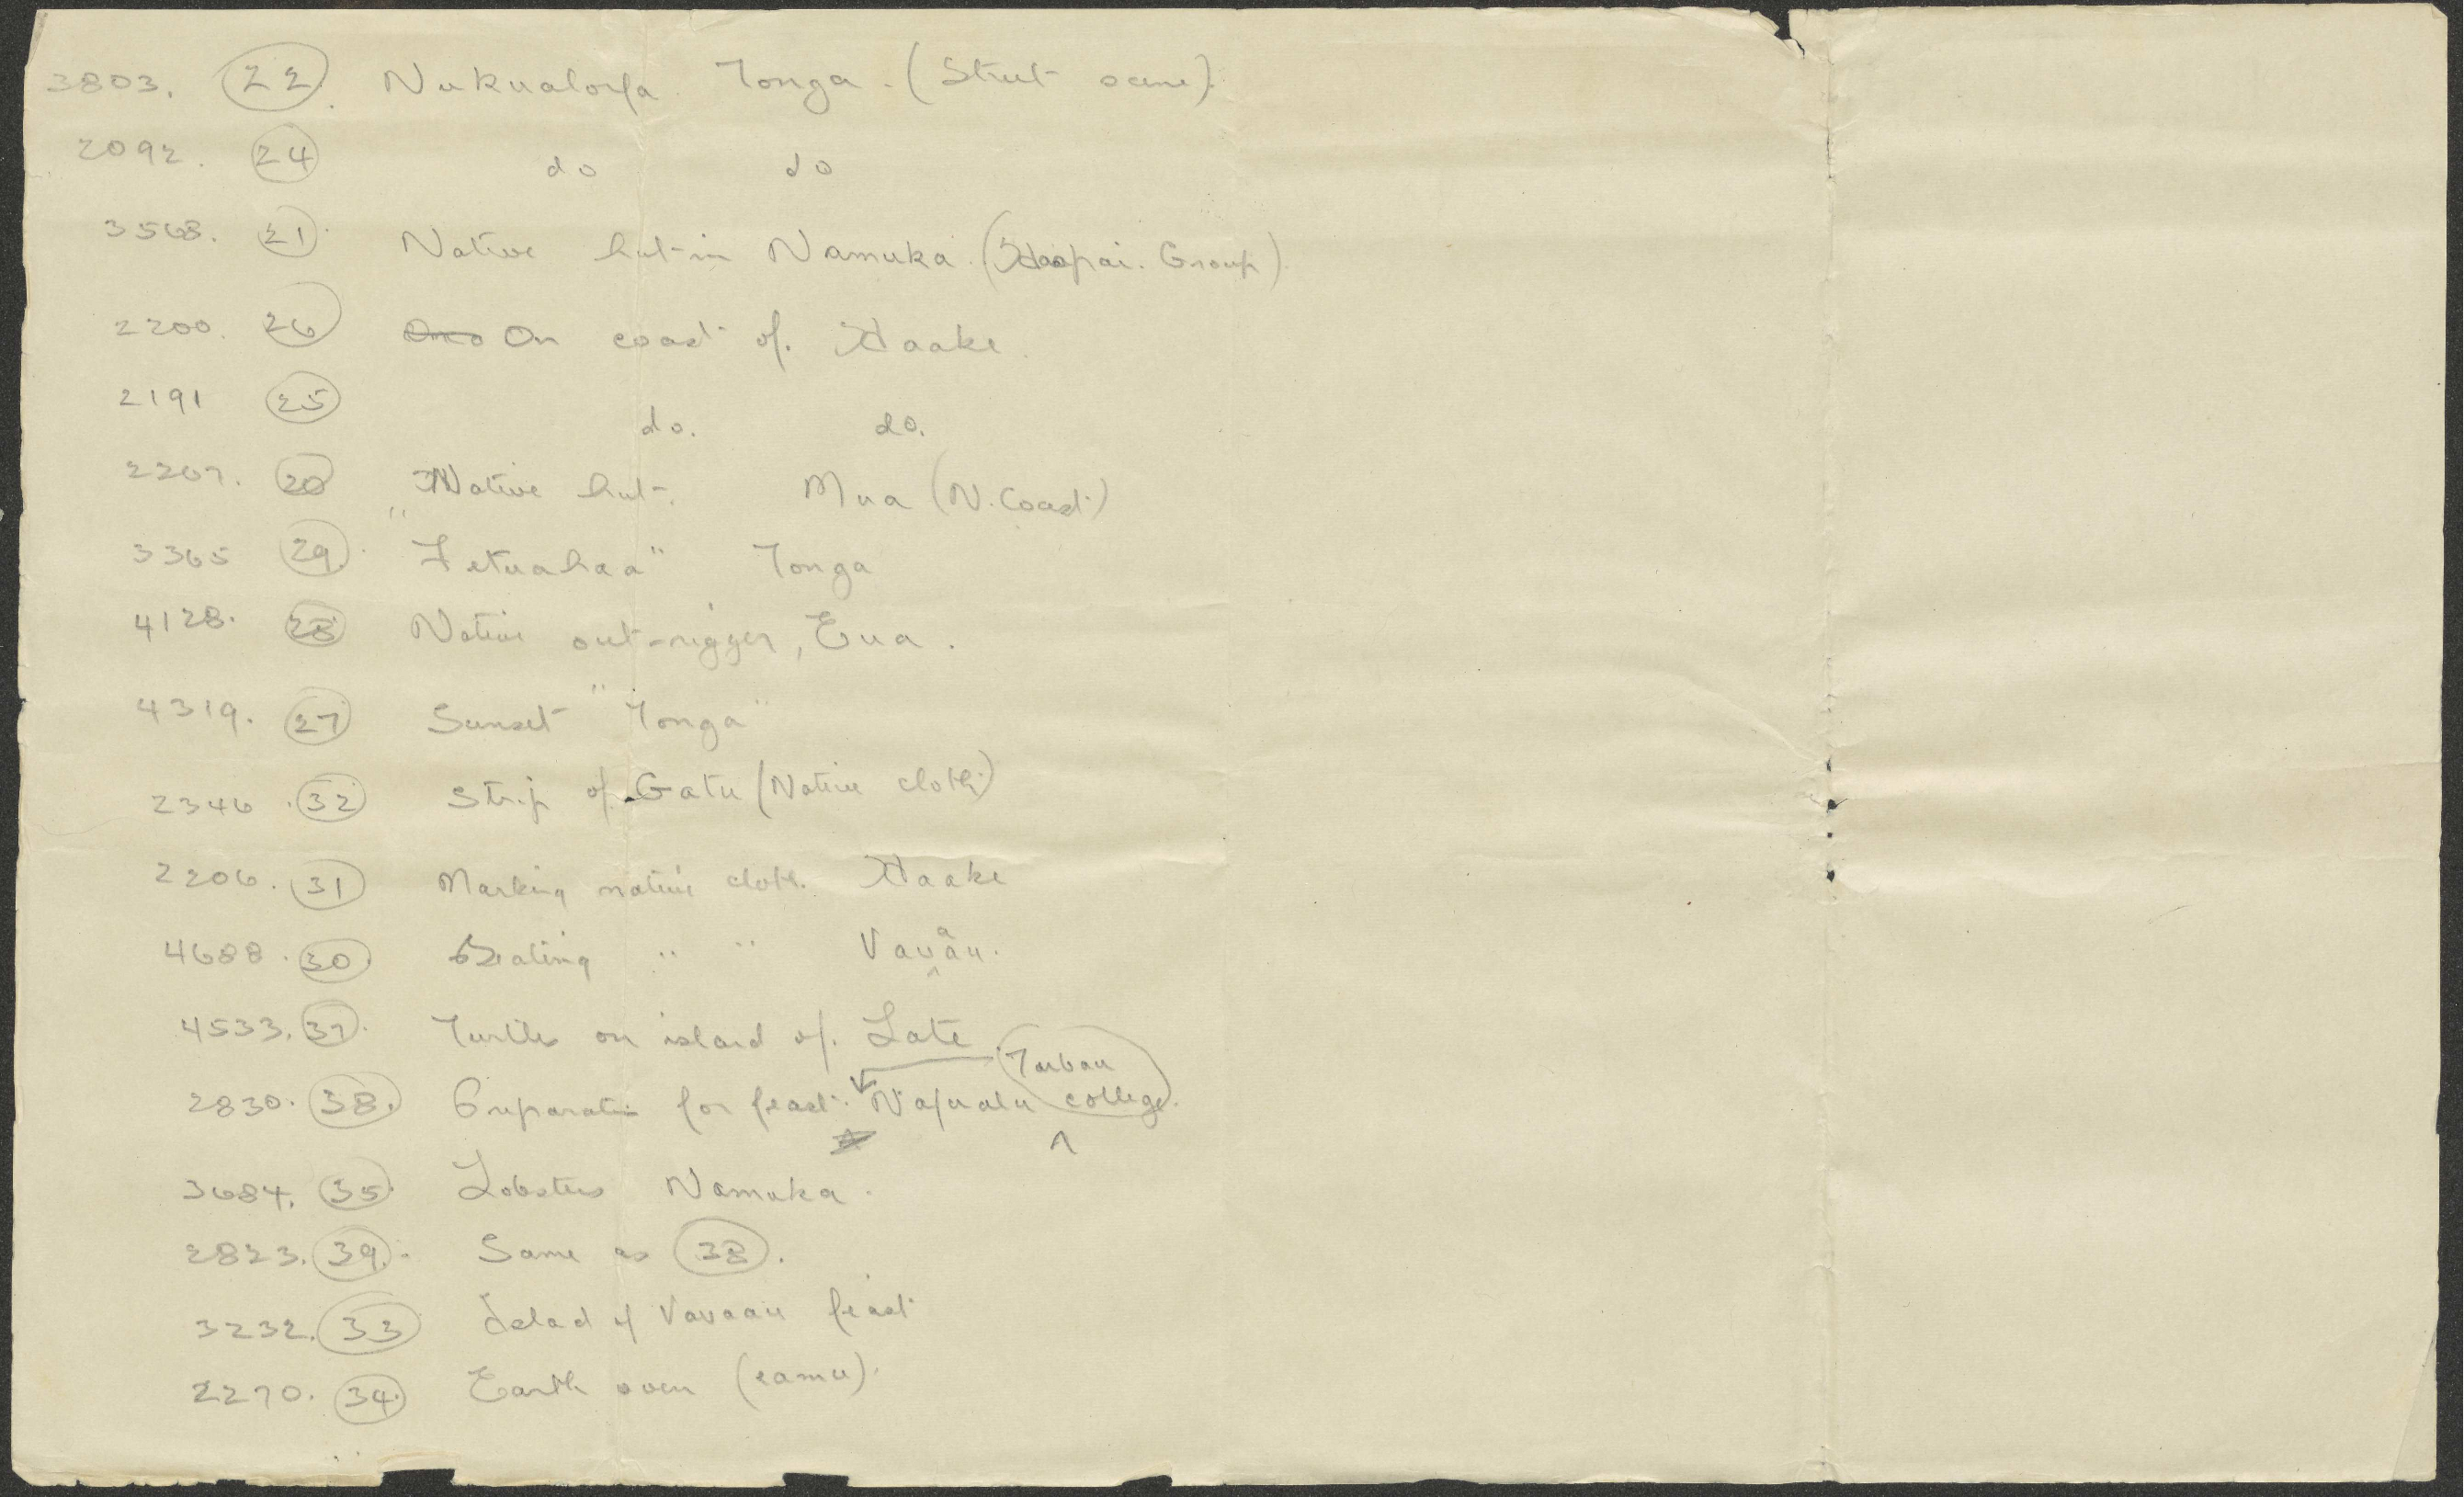 3803. 22. Nukualofa Tonga. (Street scene).
2092. 24 do do
3568. 21. Native hut in Namuka. (Haapai. Group).
2200. 26 On coast of. Haake.
2191 25 do. do.
2207. 20 Native hut. Mua (N. Coast.)
3365 29. "Fetuahaa" Tonga
4128. 28 Native out-rigger, Eua.
4319. 27 Sunset "Tonga"
2346. 32 Strip of Gatu (Native cloth.)
2206. 31 Marking native cloth. Haake
4688. 30. Beating " " Vavaau.
4533. 37. Turtles on island of. Late.
2830. 38. Preparation for feast. Nafualu Toubau college.
3684. 35. Lobsters Namuka.
2823. 39. Same as 38.
3232. 33 Island of Vavaau feast
2270. 34. Earth oven (eamu).